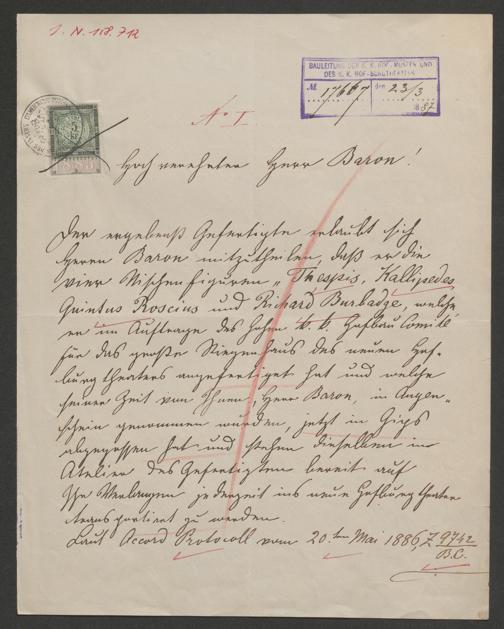 I. N. 158.712
BAULEITUNG DER K. K. HOF-MUSEEN UND
DES K. K. HOF-SCHAUSPIELHAUSES
№ 17667 den 23/3
1887
№ I
Hoch verehrter Herr Baron!
Der ergebenst Gefertigte erlaubt sich
Herrn Baron mitzutheilen, daß er die
vier Nischenfiguren „Thespis, Kallipedes
Quintus Roscius und Richard Burbadge, welche
er im Auftrage des hohen k. k. Hofbau Comité
für das große Stiegenhaus des neuen Hof-
burgtheaters angefertiget hat und welche
seiner Zeit von Ihnen, Herr Baron, in Augen-
schein genommen wurden, jetzt in Gips
abgegossen hat und stehen dieselben im
Atelier des Gefertigten bereit auf
Ihr Verlangen jederzeit ins neue Hofburgtheater
transportiert zu werden.
Laut Accord Protocoll vom 20.ten Mai 1886, Z 9742
B.C.